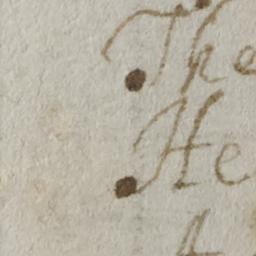 The
He